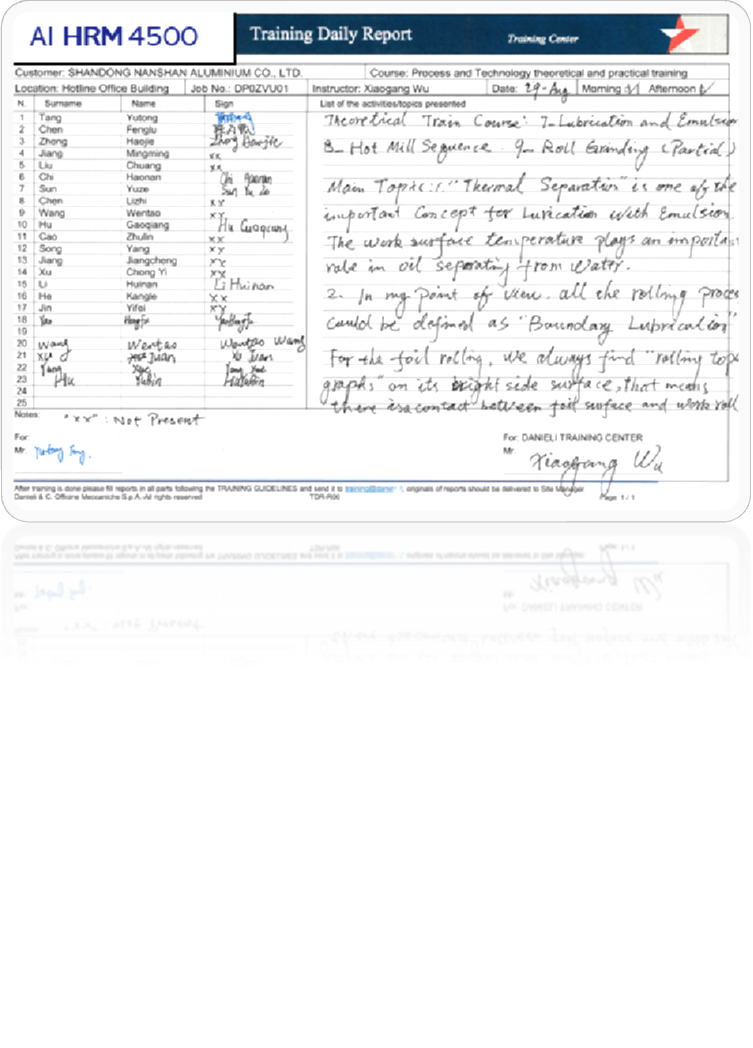 AI HRM 4500
Training Daily Report
Training Center
Customer: SHANDONG NANSHAN ALUMINIUM CO., LTD. Course: Process and Technology theoretical and practical training
Location: Hotline Office Building Job No.: DP0ZVU01 Instructor: Xiaogang Wu Date: 29-Aug Morning Afternoon
N. Surname Name Sign List of the activities/topics presented
1 Tang Yutong
2 Chen Fenglu
3 Zhong Haojie Zhong Haojie
4 Jiang Mingming xx
5 Liu Chuang xx
6 Chi Haonan Chi Haonan
7 Sun Yuze Sun Yu Ze
8 Chen Lizhi xx
9 Wang Wentao xx
10 Hu Gaoqiang Hu Gaoqiang
11 Cao Zhulin xx
12 Song Yang xx
13 Jiang Jiangcheng xx
14 Xu Chong Yi xx
15 Li Huinan Li Huinan
16 He Kangle xx
17 Jin Yifei xx
18
19
20 Wang Wentao Wentao Wang
21 Xu Juan Xu Juan
22 Yang Xue Yang Xue
23 Hu Yubin
24
25
Theoretical Train Course: 7-Lubrication and Emulsion
8- Hot Mill Sequence 9- Roll Grinding (Partial)
Main Topic: 1. "Thermal Separation" is one of the
important Concept for Lurication with Emulsion.
The work surface temperature plays an importa
role in oil separating from Water.
2. In my point of view, all the rolling proces
could be defined as "Boundary Lubrication"
For the foil rolling, we always find "rolling top
graphs" on its bright side surface, that means
there is a contact between foil surface and work roll
Notes: "xx": Not Present
For: For: DANIELI TRAINING CENTER
Mr. Yutong Tang. Mr. Xiaogang Wu
After training is done please fill reports in all parts following the TRAINING GUIDELINES and send it to originals of reports should be delivered to Site Manager
Danieli & C. Officine Meccaniche S.p.A.-All rights reserved TDR-R00 Page: 1 / 1